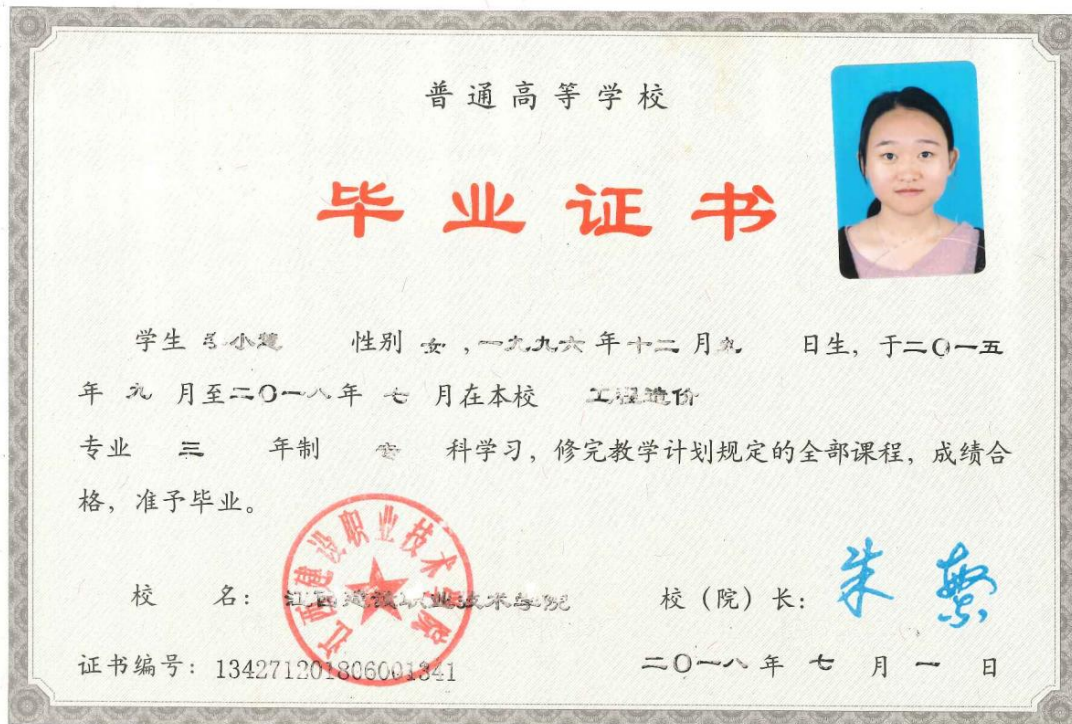 普通高等学校
毕业证书
学生 小 性别 女，一九九六年十二月九 日生，于二〇一五
年 九 月至二〇一八年 七 月在本校 工程造价
专业 三 年制 专 科学习，修完教学计划规定的全部课程，成绩合
格，准予毕业。
江西建设职业技术学院
校 名：江西建设职业技术学院 校（院）长：朱 繁
证书编号：134271201806001341 二〇一八年 七 月 一 日